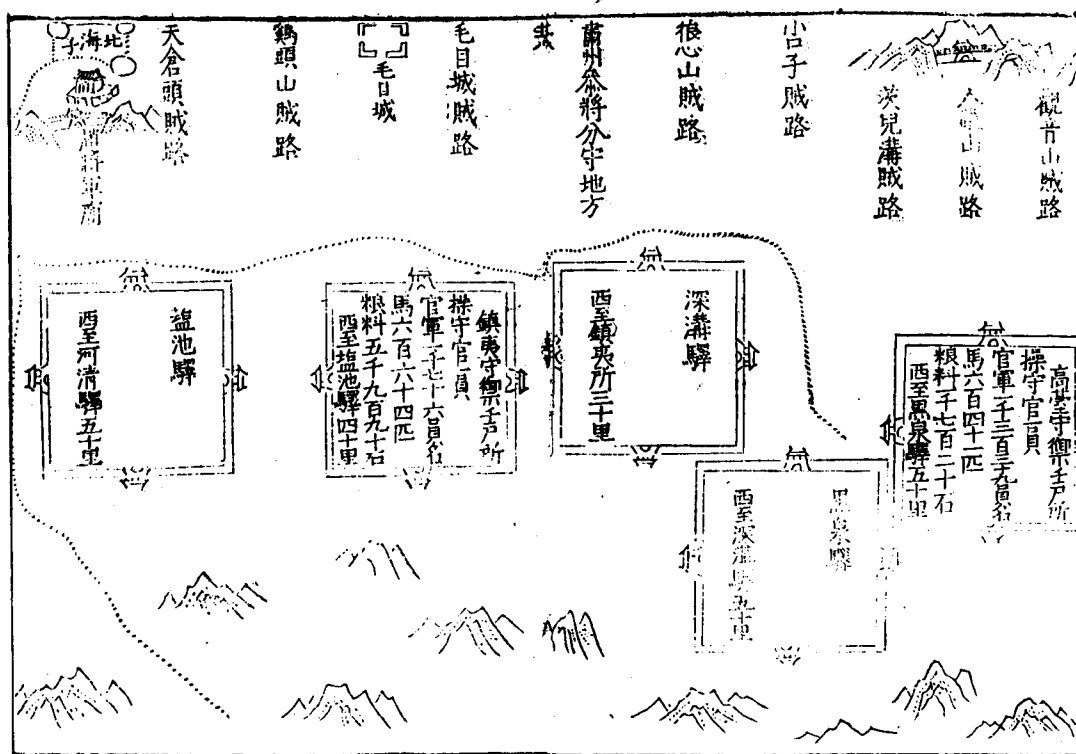 觀音山賊路
山賊路
茨兒溝賊路
小口子賊路
狼心山賊路
肅州叅將分守地方
毛目城賊路
毛目城
鷄頭山賊路
天倉頭賊路
北海子
將軍廟
高臺守禦千戶所
操守官一員
官軍一千三百三十九員名
馬六百四十二匹
粮料一千七百二十石
西至黑泉驛五十里
黑泉驛
西至深溝驛五十里
深溝驛
西至鎮夷所三十里
鎮夷守禦千戶所
操守官一員
官軍一千七十六員名
馬六百六十四匹
粮料五千九百九十石
西至塩池驛四十里
塩池驛
西至河清驛五十里